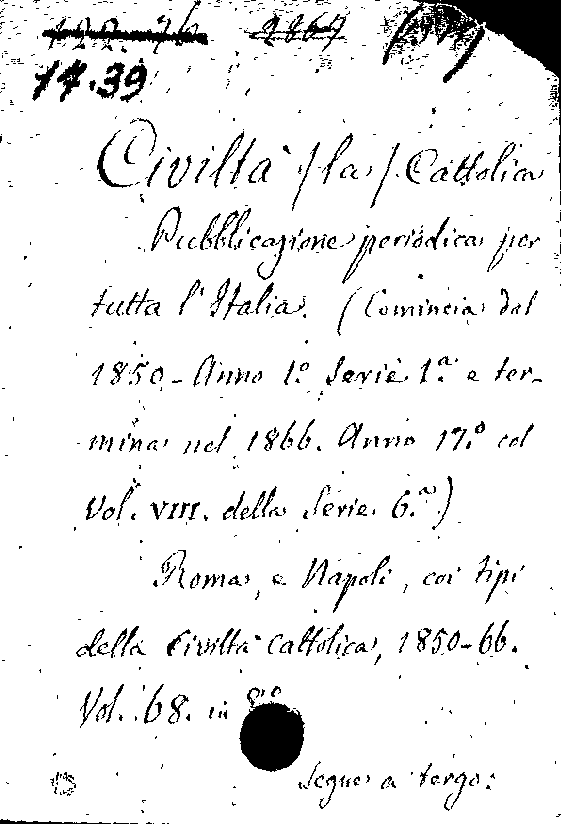 122. 76 2867
14.39
Civiltà (la) Cattolica
Pubblicazione periodica per
tutta l'Italia. (Comincia dal
1850 - Anno 1.º Serie 1.ª e ter-
mina nel 1866. Anno 17.º col
Vol. VIII. della Serie 6.ª)
Roma, e Napoli, coi tipi
della Civiltà Cattolica, 1850-66.
Vol. 68. in 8.º
Segue a tergo: